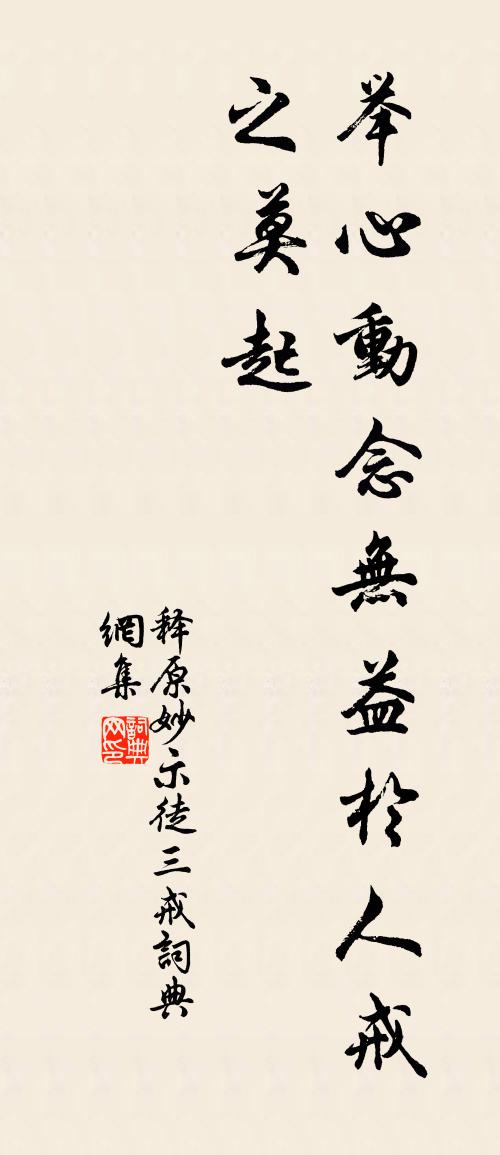 举心動念無益於人戒
之莫起
释原妙示徒三戒詞典
網集
詞典
网印